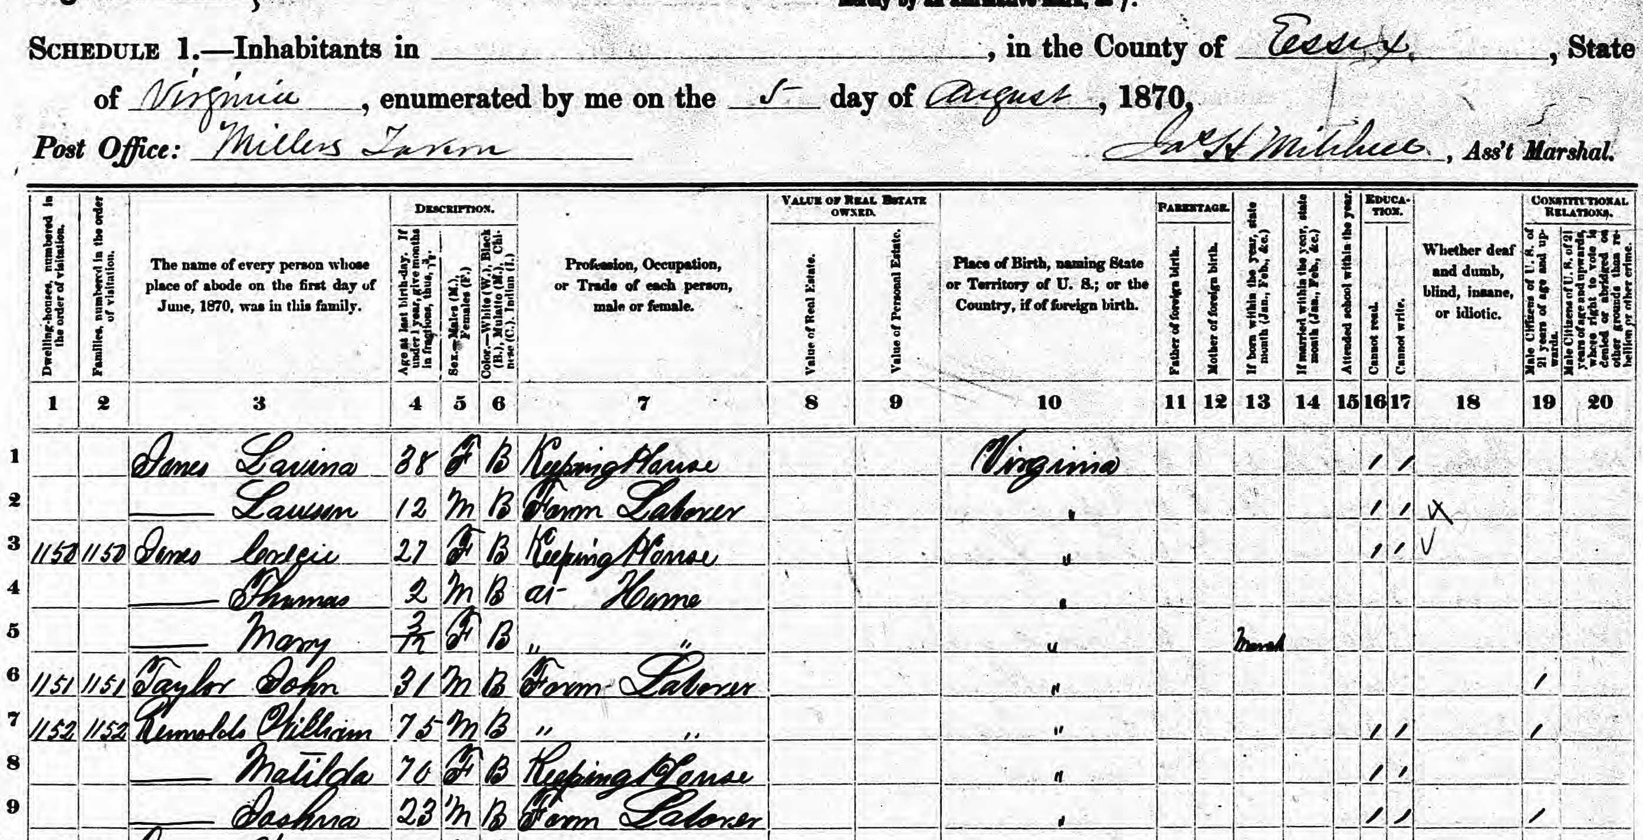 SCHEDULE 1.—Inhabitants in , in the County of Essex, State
of Virginia, enumerated by me on the 5 day of August, 1870,
Post Office: Millers Tavern Jas H Mitchell, Ass't Marshal.
Dwelling-houses, numbered in the order of visitation.
Families, numbered in the order of visitation.
The name of every person whose place of abode on the first day of June, 1870, was in this family.
DESCRIPTION.
Age at last birth-day. If under 1 year, give months in fractions, thus, 3/12.
Sex.—Males (M.), Females (F.)
Color.—White (W.), Black (B.), Mulatto (M.), Chinese (C.), Indian (I.)
Profession, Occupation, or Trade of each person, male or female.
VALUE OF REAL ESTATE OWNED.
Value of Real Estate.
Value of Personal Estate.
Place of Birth, naming State or Territory of U. S.; or the Country, if of foreign birth.
PARENTAGE.
Father of foreign birth.
Mother of foreign birth.
If born within the year, state month (Jan., Feb., &c.)
If married within the year, state month (Jan., Feb., &c.)
Attended school within the year.
EDUCATION.
Cannot read.
Cannot write.
Whether deaf and dumb, blind, insane, or idiotic.
CONSTITUTIONAL RELATIONS.
Male Citizens of U. S. of 21 years of age and upwards.
Male Citizens of U. S. of 21 years of age and upwards, where right to vote is denied or abridged on other grounds than rebellion or other crime.
1 2 3 4 5 6 7 8 9 10 11 12 13 14 15 16 17 18 19 20
1 Jones Lavina 38 F B Keeping House Virginia / /
2 —— Lawson 12 M B Farm Laborer " / /
3 1150 1150 Jones 27 F B Keeping House " / /
4 —— Thomas 2 M B at Home "
5 —— Mary 3/12 F B " " " March
6 1151 1151 Taylor John 31 M B Farm Laborer " /
7 1152 1152 Runnolds William 75 M B " " " / / /
8 —— Matilda 70 F B Keeping House " / /
9 —— Joshua 23 M B Farm Laborer " / / /